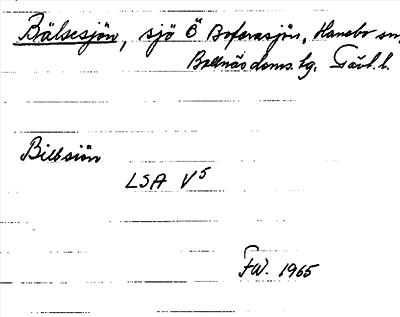 Bälsesjön, sjö Ö Boforasjön, Hanebo sn,
Bollnäs doms.hg. Gävl.l.
Billsiön
LSA V5
FW. 1965